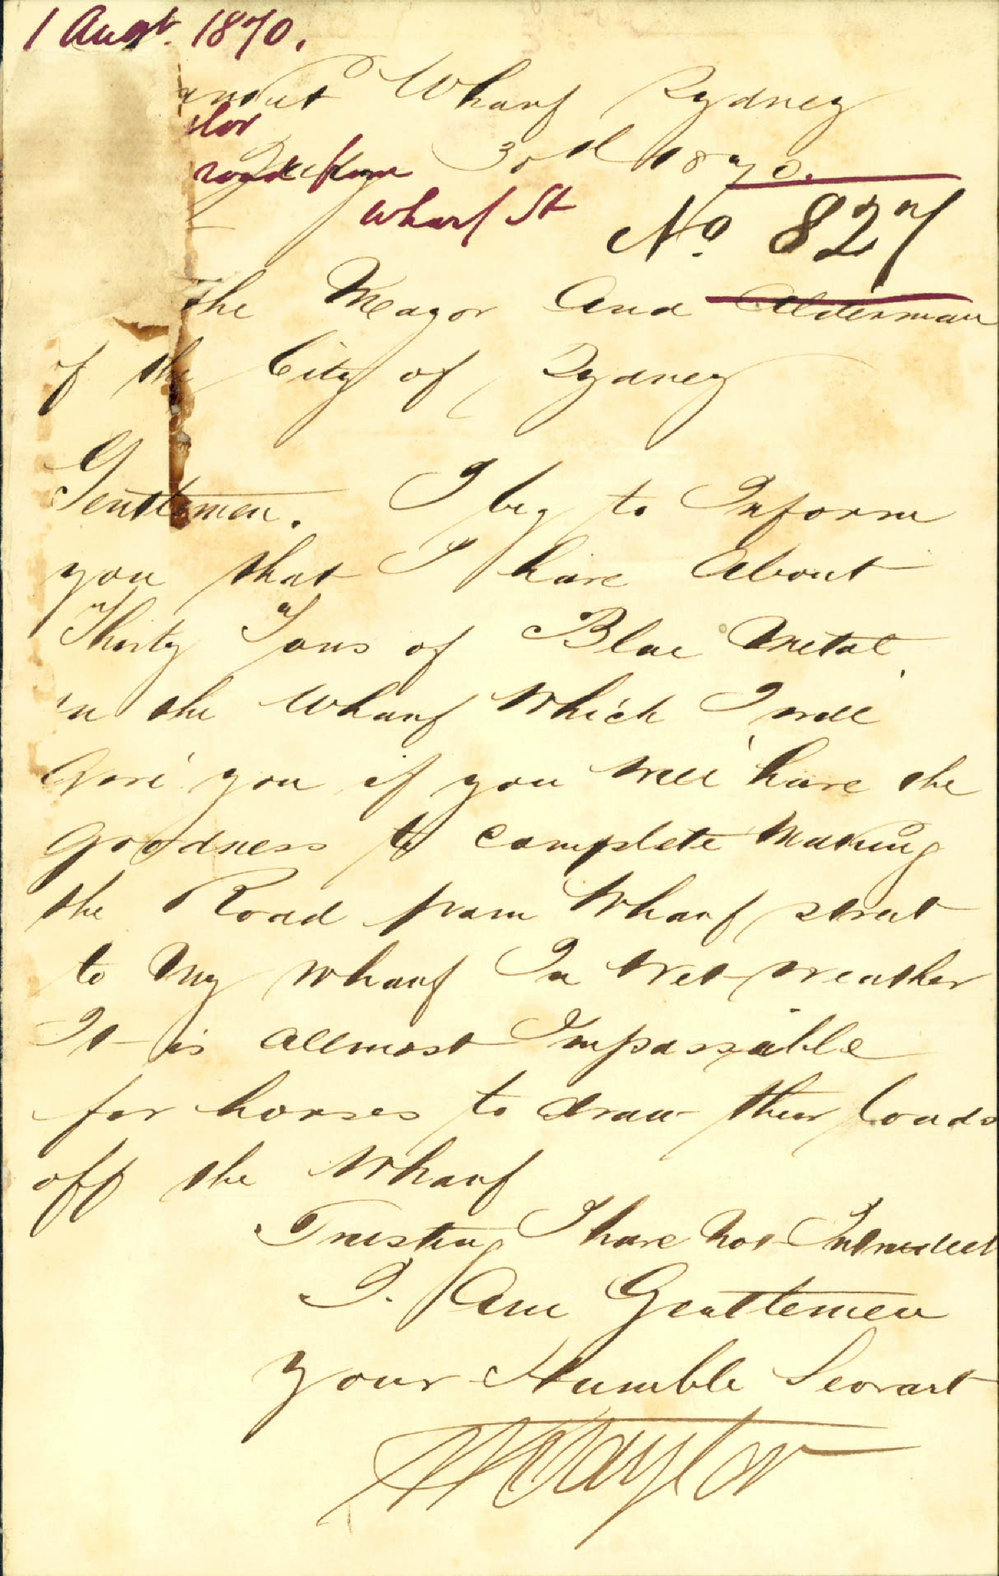 1 Augt. 1870.
Wharf Sydney
30th 1870.
lor
road from
Wharf St
No. 827
The Mayor And Alderman
of the City of Sydney
Gentlemen. I beg to Inform
you that I have About
Thirty Tons of Blue Metal
in the Wharf Which I will
Give you if you will have the
goodness to complete Making
the Road from Wharf street
to My Wharf In Wet weather
It is allmost Impassable
for horses to draw their loads
off the Wharf
Trusting I have Not Intruded
I. Am Gentlemen
your Humble Servant
Taylor